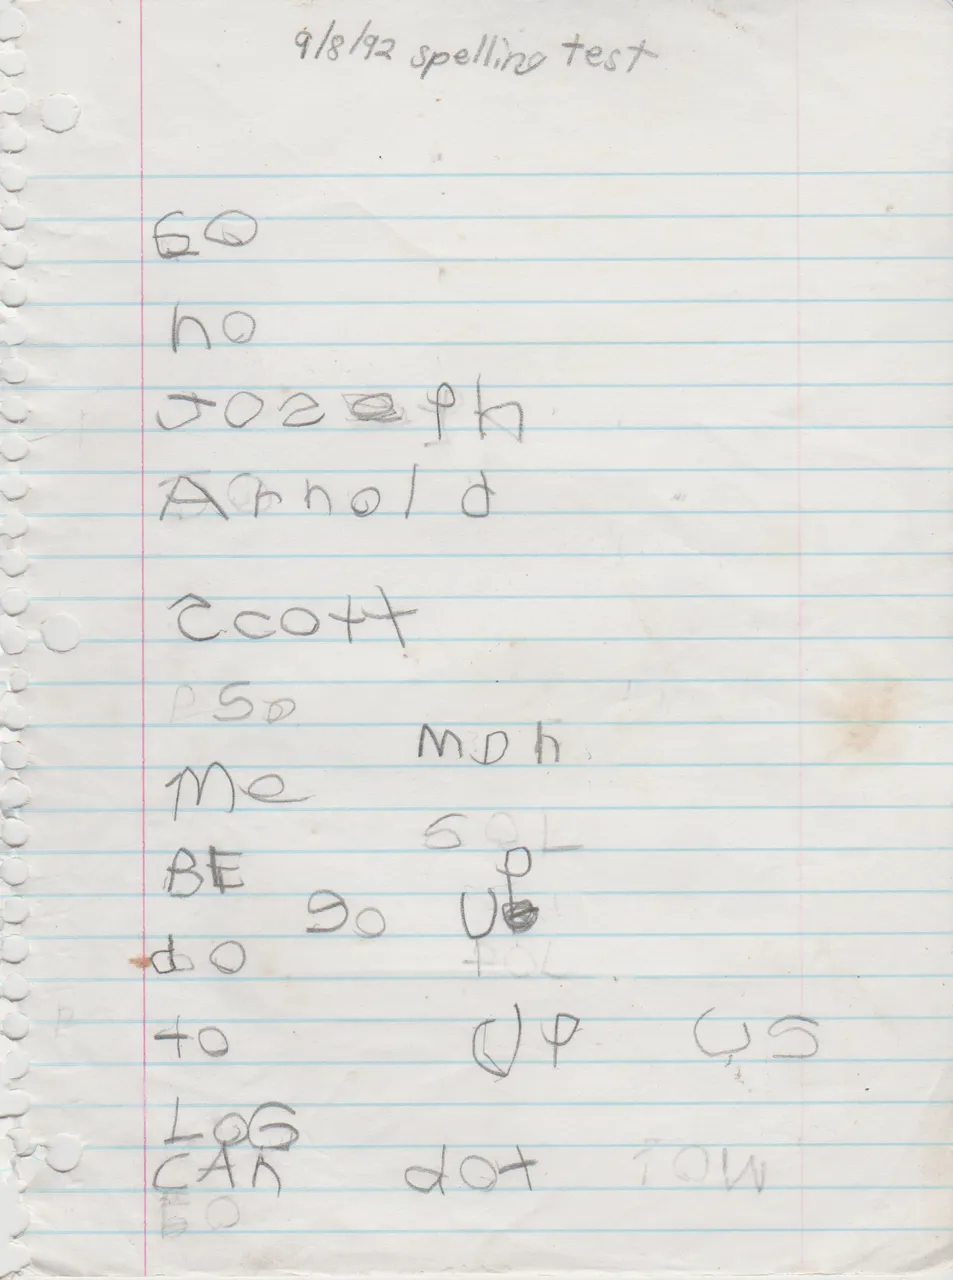 9/8/92 spelling test
GO
no
Joseph
Arnold
Scott
So
Mon
Me
SOL
BE
p
go U
do
to UP US
LOG
CAn dot TOW